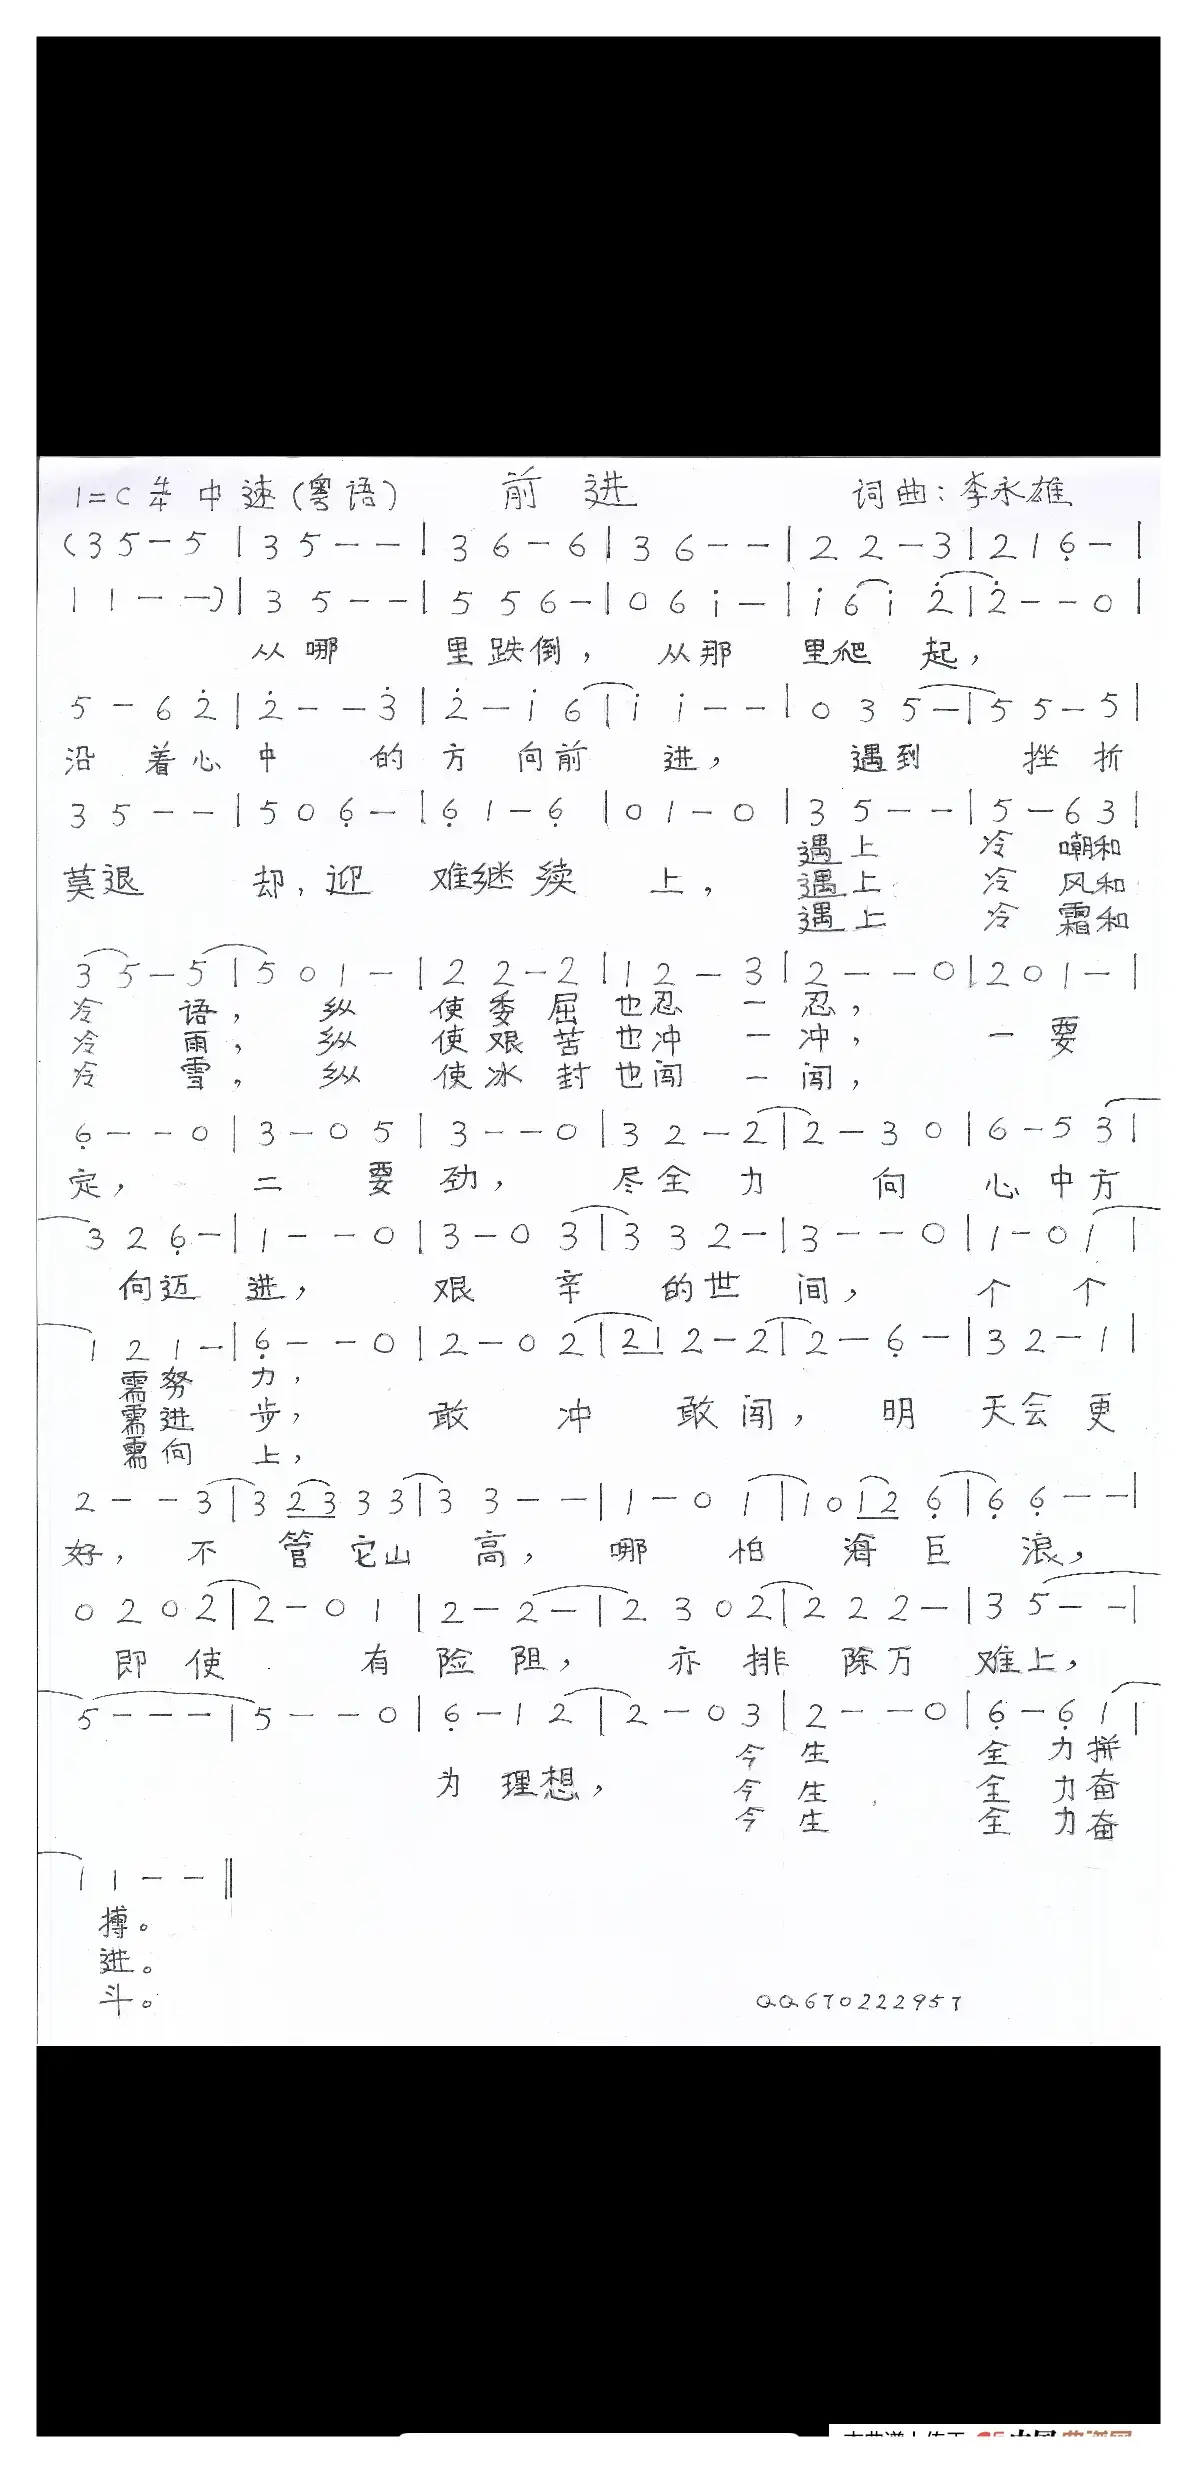 1=C 4/4 中速(粤语) 前进 词曲:李永雄
(3 5 - 5 | 3 5 - - | 3 6 - 6 | 3 6 - - | 2 2 - 3 | 2 1 6̣ - |
1 1 - -) | 3 5 - - | 5 5 6 - | 0 6 i - | i 6 i 2̇ | 2̇ - - 0 |
从哪 里跌倒, 从那 里爬 起,
5 - 6 2̇ | 2̇ - - 3̇ | 2̇ - i 6 | i i - - | 0 3 5 - | 5 5 - 5 |
沿 着心 中 的 方 向前 进, 遇到 挫 折
3 5 - - | 5 0 6̣ - | 6̣ 1 - 6̣ | 0 1 - 0 | 3 5 - - | 5 - 6 3 |
莫退 却, 迎 难继 续 上, 遇上 冷 嘲和
遇上 冷 风和
遇上 冷 霜和
3 5 - 5 | 5 0 1 - | 2 2 - 2 | 1 2 - 3 | 2 - - 0 | 2 0 1 - |
冷 语, 纵 使 委 屈 也忍 一 忍,
冷 雨, 纵 使 艰 苦 也冲 一 冲, 一 要
冷 雪, 纵 使 冰 封 也闯 一 闯,
6̣ - - 0 | 3 - 0 5 | 3 - - 0 | 3 2 - 2 | 2 - 3 0 | 6 - 5 3 |
定, 二 要 劲, 尽全 力 向 心 中方
3 2 6̣ - | 1 - - 0 | 3 - 0 3 | 3 3 2 - | 3 - - 0 | 1 - 0 1 |
向迈 进, 艰 辛 的世 间, 个 个
1 2 1 - | 6̣ - - 0 | 2 - 0 2 | 2 1 2 - 2 | 2 - 6̣ - | 3 2 - 1 |
需努 力,
需进 步, 敢 冲 敢 闯, 明 天会 更
需向 上,
2 - - 3 | 3 2 3 3 3 | 3 3 - - | 1 - 0 1 | 1 0 1 2 6̣ | 6̣ 6̣ - - |
好, 不 管 它山 高, 哪 怕 海 巨 浪,
0 2 0 2 | 2 - 0 1 | 2 - 2 - | 2 3 0 2 | 2 2 2 - | 3 5 - - |
即 使 有 险 阻, 亦 排 除万 难上,
5 - - - | 5 - - 0 | 6̣ - 1 2 | 2 - 0 3 | 2 - - 0 | 6̣ - 6̣ 1 |
今 生 全 力拼
为 理想, 今 生 全 力奋
今 生 全 力奋
1 1 - - ‖
搏。
进。
斗。
QQ670222957